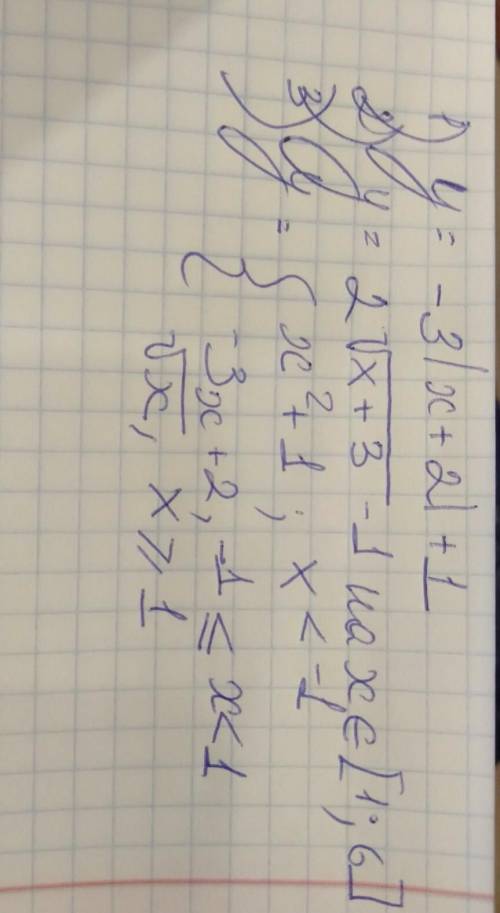 1) y = -3|x+2|+1
2) y = 2√x+3 -1 на x∈[1;6]
3) y = { x²+1; x < -1
-3x+2, -1 ≤ x < 1
√x, x ≥ 1